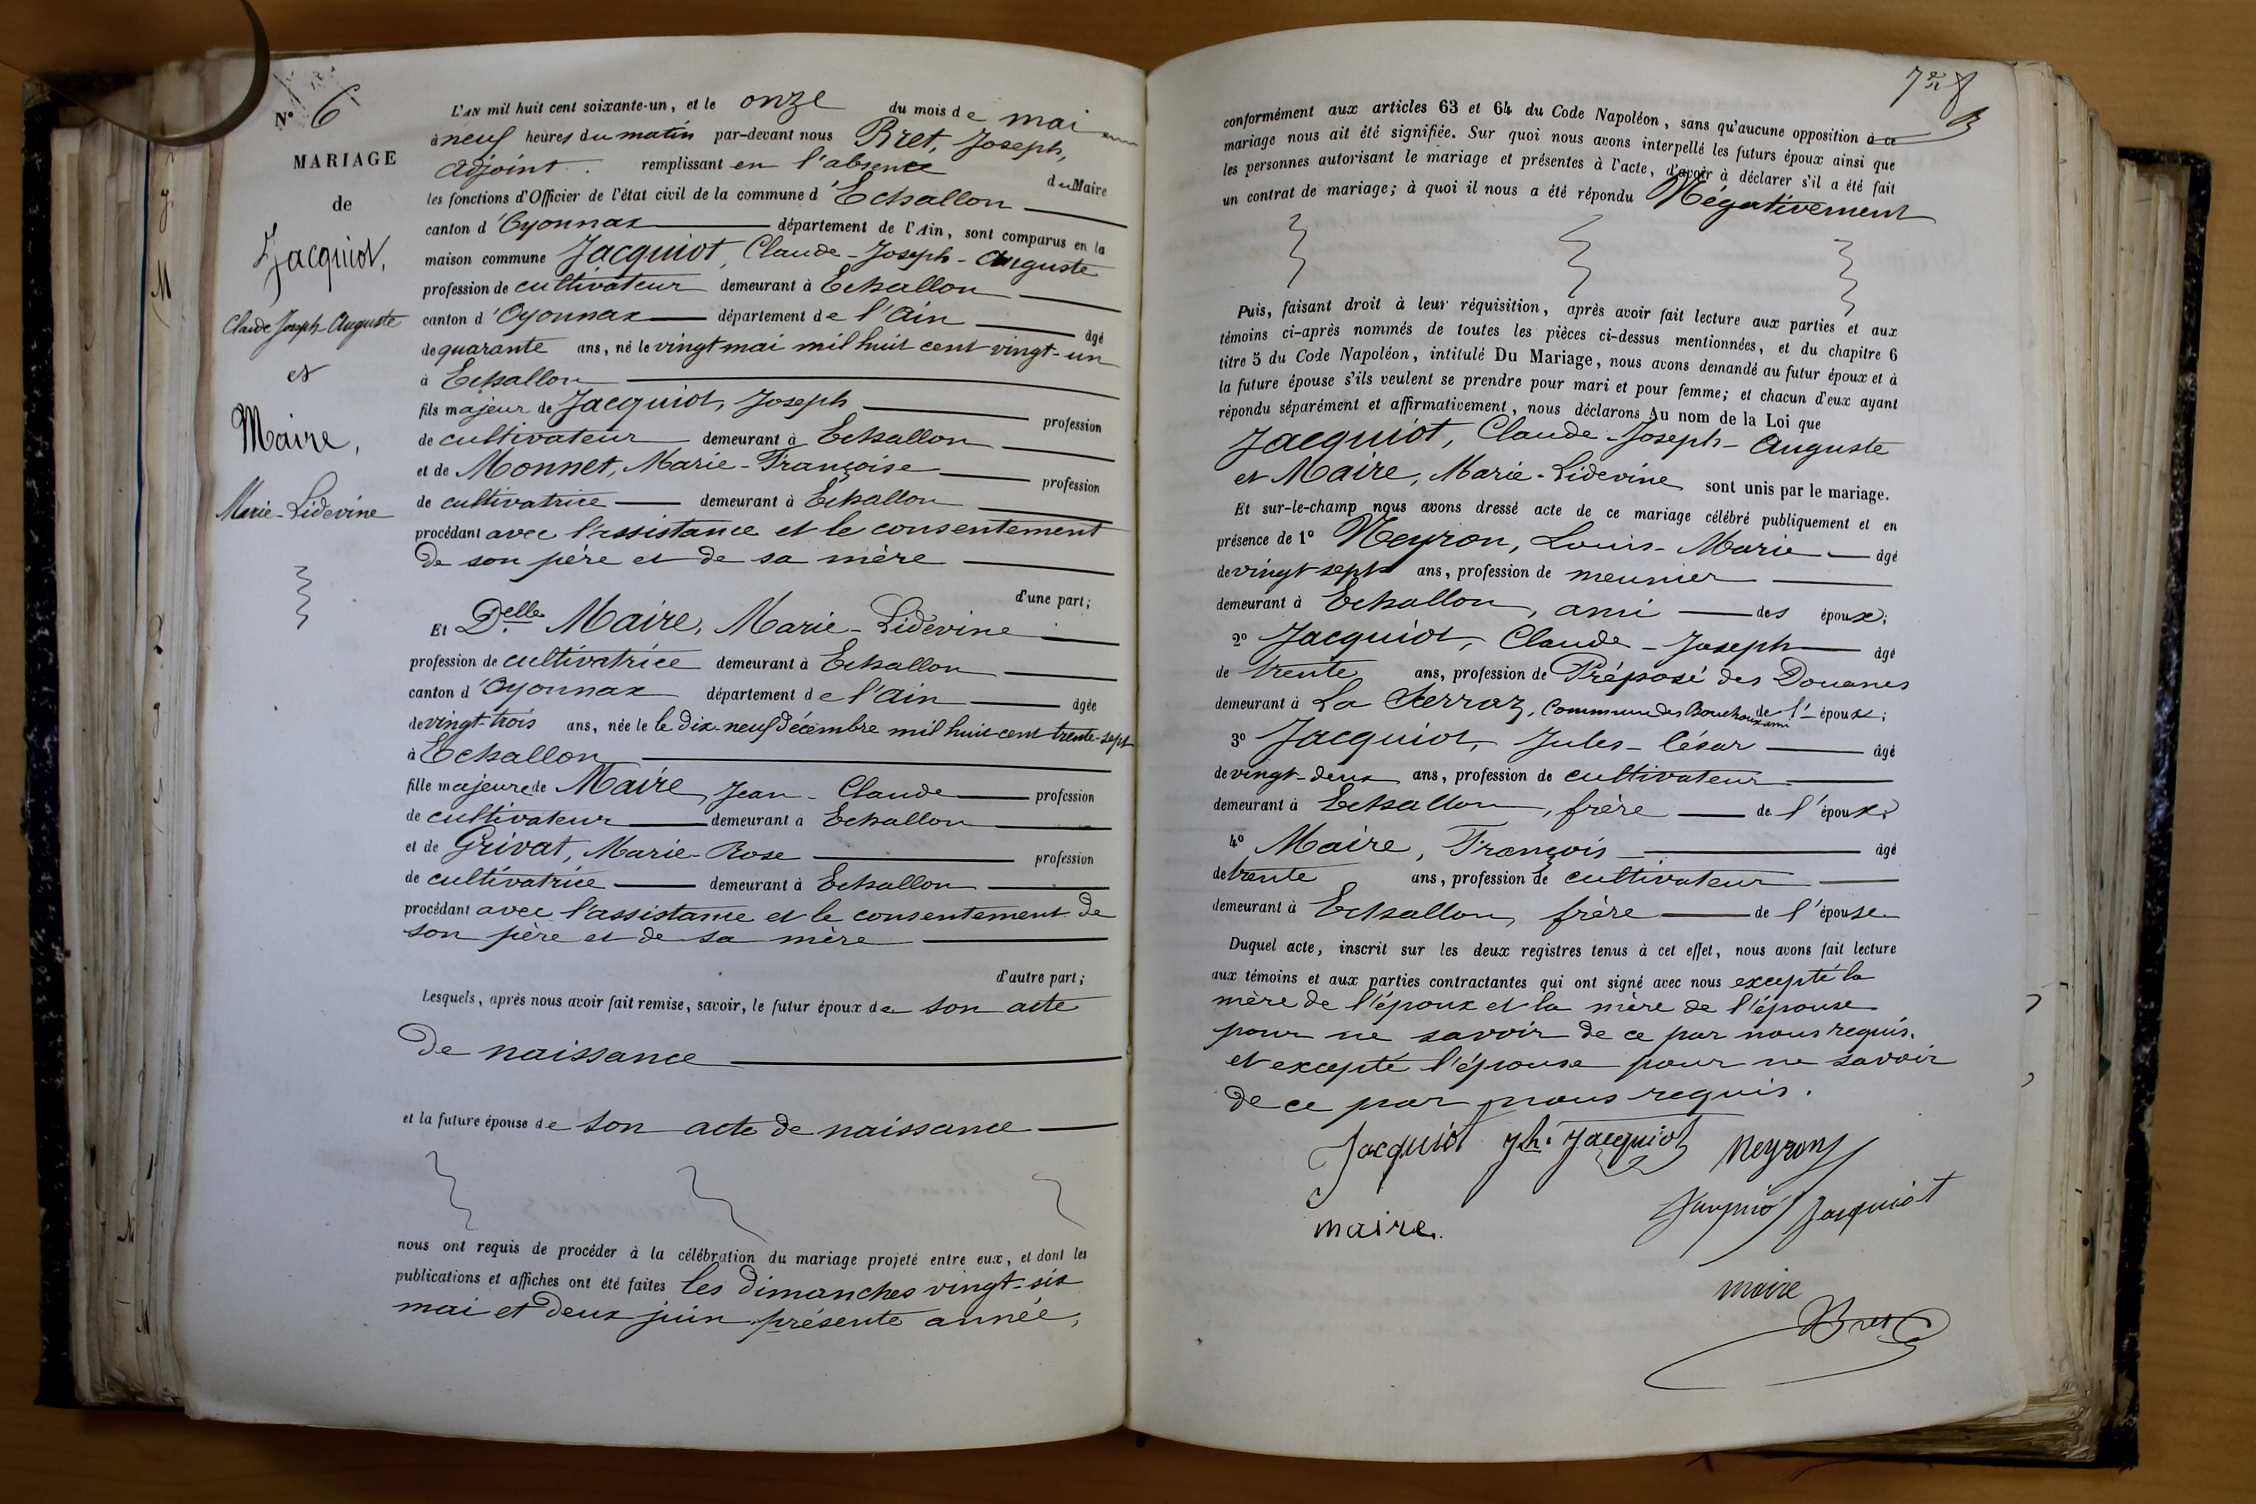 N° 6
MARIAGE
de
Jacquiot,
Claude Joseph Auguste
et
Maire,
Marie-Lidevine
L'AN mil huit cent soixante-un, et le onze du mois de mai
à neuf heures du matin par-devant nous Bret, Joseph,
adjoint. remplissant en l'absence du Maire
les fonctions d'Officier de l'état civil de la commune d'Echallon
canton d'Oyonnax département de l'Ain, sont comparus en la
maison commune Jacquiot, Claude-Joseph-Auguste
profession de cultivateur demeurant à Echallon
canton d'Oyonnax département de l'Ain âgé
de quarante ans, né le vingt mai mil huit cent vingt-un
à Echallon
fils majeur de Jacquiot, Joseph profession
de cultivateur demeurant à Echallon
et de Monnet, Marie-Françoise profession
de cultivatrice demeurant à Echallon
procédant avec l'assistance et le consentement
de son père et de sa mère
d'une part;
Et Delle Maire, Marie-Lidevine
profession de cultivatrice demeurant à Echallon
canton d'Oyonnax département de l'Ain âgée
de vingt-trois ans, née le le dix-neuf décembre mil huit cent trente-sept
à Echallon
fille majeure de Maire, Jean-Claude profession
de cultivateur demeurant à Echallon
et de Grivat, Marie-Rose profession
de cultivatrice demeurant à Echallon
procédant avec l'assistance et le consentement de
son père et de sa mère
d'autre part;
Lesquels, après nous avoir fait remise, savoir, le futur époux de son acte
de naissance
et la future épouse de son acte de naissance
nous ont requis de procéder à la célébration du mariage projeté entre eux, et dont les
publications et affiches ont été faites les dimanches vingt-six
mai et deux juin présente année,
conformément aux articles 63 et 64 du Code Napoléon, sans qu'aucune opposition à ce
mariage nous ait été signifiée. Sur quoi nous avons interpellé les futurs époux ainsi que
les personnes autorisant le mariage et présentes à l'acte, d'avoir à déclarer s'il a été fait
un contrat de mariage; à quoi il nous a été répondu Négativement
Puis, faisant droit à leur réquisition, après avoir fait lecture aux parties et aux
témoins ci-après nommés de toutes les pièces ci-dessus mentionnées, et du chapitre 6
titre 5 du Code Napoléon, intitulé Du Mariage, nous avons demandé au futur époux et à
la future épouse s'ils veulent se prendre pour mari et pour femme; et chacun d'eux ayant
répondu séparément et affirmativement, nous déclarons Au nom de la Loi que
Jacquiot, Claude-Joseph-Auguste
et Maire, Marie-Lidevine sont unis par le mariage.
Et sur-le-champ nous avons dressé acte de ce mariage célébré publiquement et en
présence de 1° Neyron, Louis-Marie âgé
de vingt sept ans, profession de meunier
demeurant à Echallon, ami des époux;
2° Jacquiot, Claude-Joseph âgé
de trente ans, profession de Préposé des Douanes
demeurant à La Serraz, Commune des Bouchoux ami de l'époux;
3° Jacquiot, Jules-César âgé
de vingt-deux ans, profession de cultivateur
demeurant à Echallon, frère de l'époux;
4° Maire, François âgé
de trente ans, profession de cultivateur
demeurant à Echallon, frère de l'épouse
Duquel acte, inscrit sur les deux registres tenus à cet effet, nous avons fait lecture
aux témoins et aux parties contractantes qui ont signé avec nous excepté la
mère de l'époux et la mère de l'épouse
pour ne savoir de ce par nous requis.
et excepté l'épouse pour ne savoir
de ce par nous requis.
Jacquiot Jh. Jacquiot Neyron
Jacquiot Jacquiot
maire.
maire
Bret